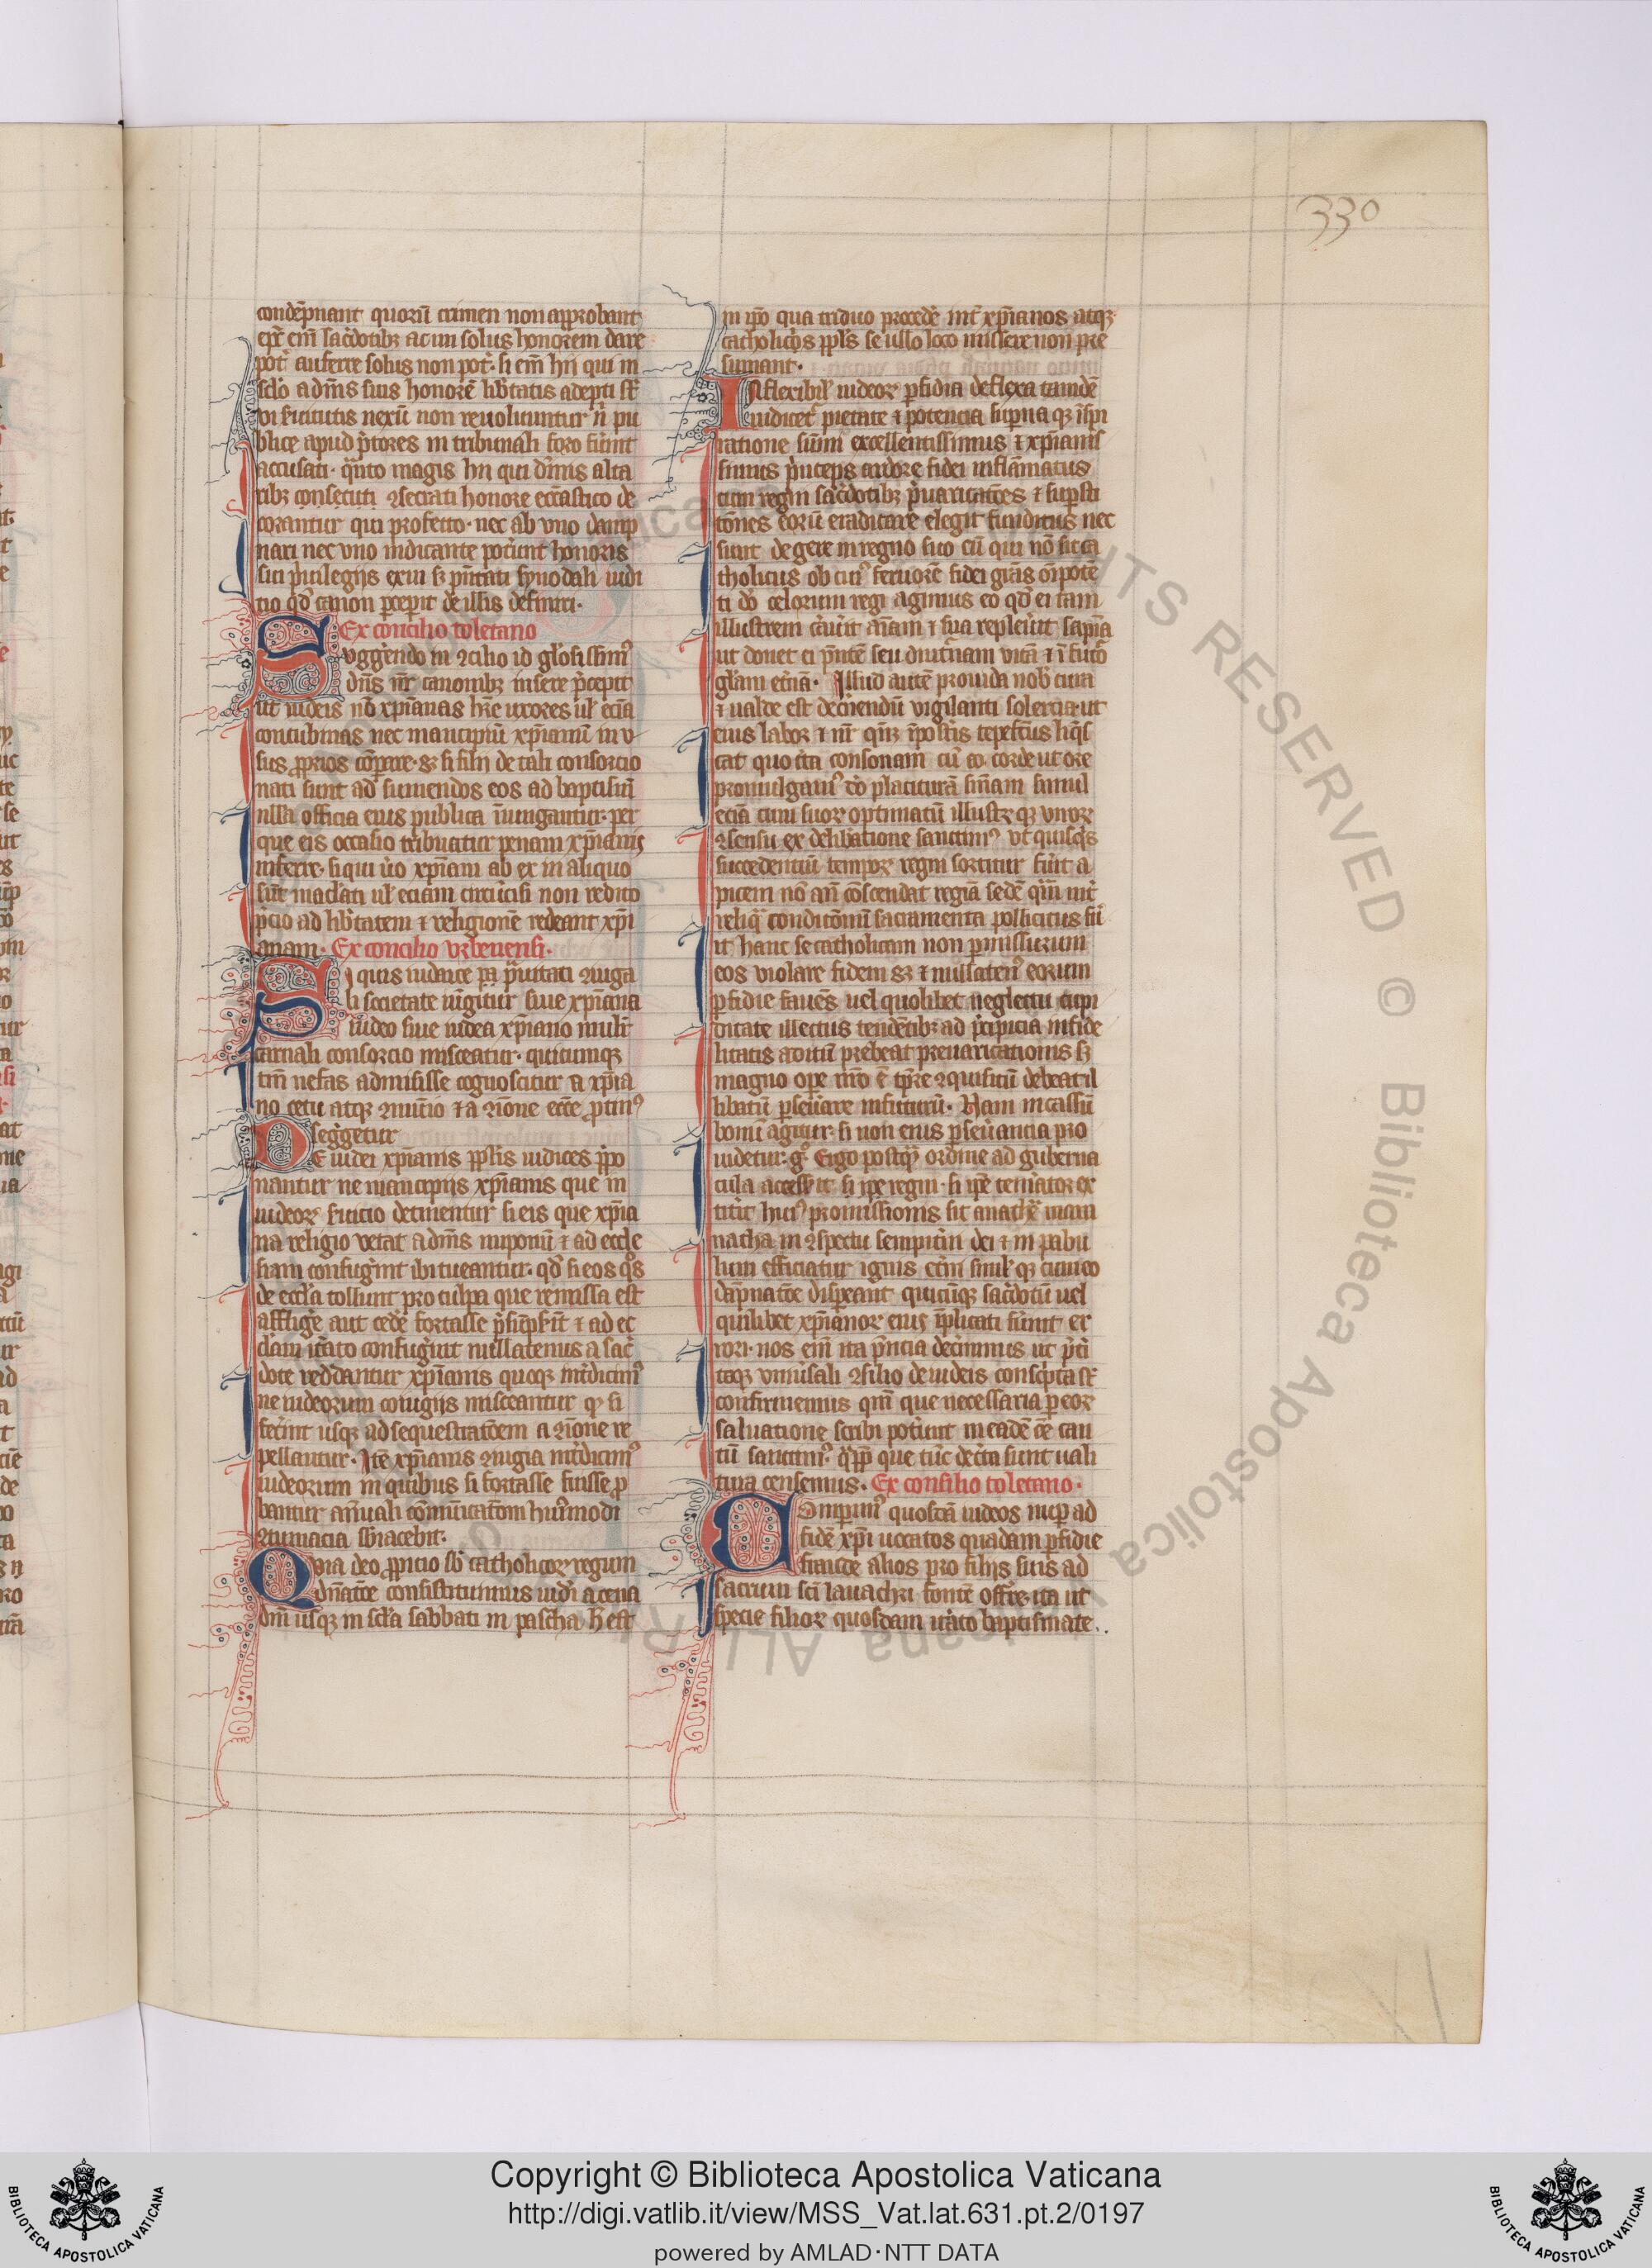 330
condēpnant quorū crimen non approbant
epc̄ em̄ sac̄dotibȝ ac mi solus honorem dare
pot̄ auferre solus non pot̄. si em̄ hii qui in
sc̄lo a dn̄is suis honorē lib̄tatis adepti st̄
īuitutis nexū non reuoluuntur n̄ pu
blice apud p̄tores in tribunali foro fūint
accusati. q̄nto magis hii qui diuinis alta
ribȝ consecuti ꝯsecrati honore ecc̄astico de
corantur qui profecto. nec ab vno damp
nari nec vno iudicante pot̄unt honoris
sui p̄uilegijs exui sȝ p̄ntati synodali iudi
cio qd̄ canon p̄cepit de illis definiri.
Ex concilio toletano
Suggerendo in ꝯcilio id gl̄osissimꝰ
dn̄s nr̄ canonibȝ insere p̄cepit
ut iudeis nō xp̄ianas hr̄e uxores ul̄ ecīā
concubinas nec mancipiū xp̄ianū in v
sus ꝓprios cōpare. sȝ si filij de tali consorcio
nati sunt ad sumendos eos ad baptismū
nlla officia eius publica iniungantur. per
que eis occasio tribuatur penam xp̄ianis
inferre. si qui uo xp̄iani ab eis in aliquo
sūt maclati ul̄ eciam circūcisi non redito
p̄cio ad lib̄tatem ⁊ religionē redeant xp̄i
anam. Ex concilio vrbeuensi.
Si quis iudaice pͣ prauitati ꝯiuga
li societate iūgitur siue xp̄iana
iudeo siue iudea xp̄iano mulīr
carnali consorcio misceatur. quicumqȝ
tm̄ nefas admisisse cognoscitur a xp̄ia
no cetu atqȝ ꝯuiuio ⁊ a ꝯione ecc̄e ꝓtinꝰ
seggetur
Ne iudei xp̄ianis ppl̄is iudices p̄po
nantur ne mancipijs xp̄ianis que in
iudeorꝝ s̄uicio detinentur si eis que xp̄ia
na religio vetat a dn̄is imponū ⁊ ad eccle
siam confuḡint ibi tueantur. qd̄ si eos q̊s
de eccl̄a tollunt pro culpa que remissa est
afflige aut cedē fortasse p̄sūpser̄it ⁊ ad ec
clam itato confuḡiut nullatenus a sac̄
dote reddantur xp̄ianis quoqȝ int̄dicimꝰ
ne iudeorum coniugijs misceantur qꝫ si
fec̄int usqȝ ad sequestratōem a ꝯione re
pellantur. Itē xp̄ianis ꝯuigia int̄dicimꝰ
iudeorum in quibus si fortasse fuisse ꝓ
bantur annuali cōmūicatōni huiꝰmodi
ꝯtumacia sbiacebit.
Quia deo ꝓpicio sb̄ catholicorꝝ regum
dn̄atōe consistimus iud̄i a cena
dn̄i usqȝ in sc̄da sabbati in pascha h̄ est
in ip̄o qua triduo procedē int̄ xp̄ianos atqȝ
catholicos ppl̄s se ullo loco missere non pre
sumant.
Inflexibil̄ iudeorꝝ p̄fidia deflexa tandē
iudicet̄ pietate ⁊ potencia sup̄na qȝ īsp̄i
ratione sūmi excellentissimus ⁊ xp̄ianis
simus p̄nceps ardore fidei inflāmatus
cum regni sac̄dotibȝ p̄uaricatōes ⁊ sup̄sti
tōnes eorū eradicare elegit funditus nec
sinit degere in regno suo cū qui nō sit ca
tholicus ob cuiꝰ feruorē fidei grās oīpotē
ti dō celorum regi agimus eo qd̄ ei tam
illustrem c̄auit aīam ⁊ sua repleuit sapīa
ut donet ei p̄ntē seu diut̄nam vitā ⁊ ī fut̄o
glām et̄nā. Illud autē prouida nob̄ cura
⁊ ualde est dec̄nendū vigilanti solercia ut
eius labor ⁊ nr̄ qn̄qȝ īpost̄is tepescēs liq̄s
cat quo c̄ca consonam cū eo. corde ut ore
promulgamꝰ dō placiturā sn̄iam simul
eciā cum suorꝝ optimatū illustrꝝ qȝ virorꝝ
ꝯsensu ex delib̄atione sanctimꝰ vt quisq̄s
succedentiū temporꝝ regni sortitur fūit a
picem nō an̄ cōscendat regiā sedē q̄m int̄
reliq̄s conditōnū sacramenta pollicitus fūi
it hanc se catholicam non p̄missurum
eos violare fidem sȝ ⁊ nullatenꝰ eorum
p̄fidie fauēs uel quolibet neglectu cupi
ditate illectus tendētibȝ ad p̄cipicia infide
litatis aditū prebeat preuaricationis sȝ
magno ope nr̄o ē tp̄re ꝯquisitū debeat il
libatū p̄seūare infuturū. Nam incassū
bonū agitur. si non eius p̄seūancia pro
uidetur. gͦ. Ergo postqͣ ordine ad guberna
cula accesse it si ipe regni. si ipē temator ex
titit huiꝰ promissionis sit anathē mara
natha in ꝯspectu sempitni dei ⁊ in pabu
lum efficiatur ignis et̄ni simul̄ qȝ cum eo
dāpnatōe disp̄eant quicūqȝ sac̄dotū uel
quilibet xp̄ianorꝝ eius īplicati fūint er
rori. nos em̄ ita p̄ncia dec̄nimus ut p̄ti
toqȝ vniūsali ꝯsilio de iudeis conscripta st̄
confirmemus qm̄ que necessaria p̄ eorꝝ
saluatione scribi pot̄unt in eadē cē cau
tū sanctimꝰ. q̄ꝓp que tūc dec̄ta sunt uali
tura censemus. Ex consilio toletano.
Comp̄imꝰ quosdā iudeos nup̄ ad
fidē xp̄i uocatos quadam p̄fidie
fraude alios pro filijs suis ad
sacrum sc̄i lauachri fontē offr̄e. ita ut
specie filiorꝝ quosdam itāto baptismate.
Copyright © Biblioteca Apostolica Vaticana
http://digi.vatlib.it/view/MSS_Vat.lat.631.pt.2/0197
powered by AMLAD·NTT DATA
BIBLIOTECA APOSTOLICA VATICANA
BIBLIOTECA APOSTOLICA VATICANA